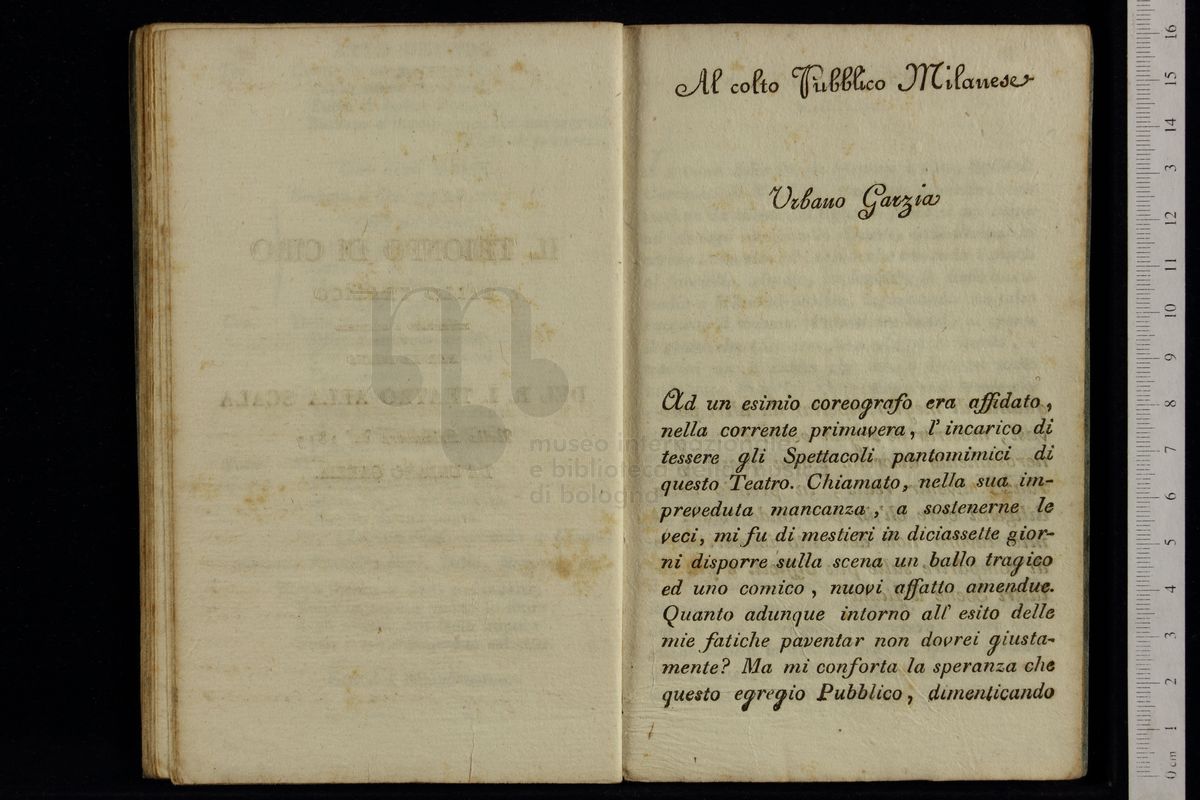 Al colto Pubblico Milanese
Urbano Garzia
Ad un esimio coreografo era affidato,
nella corrente primavera, l'incarico di
tessere gli Spettacoli pantomimici di
questo Teatro. Chiamato, nella sua im-
preveduta mancanza, a sostenerne le
veci, mi fu di mestieri in diciassette gior-
ni disporre sulla scena un ballo tragico
ed uno comico, nuovi affatto amendue.
Quanto adunque intorno all' esito delle
mie fatiche paventar non dovrei giusta-
mente? Ma mi conforta la speranza che
questo egregio Pubblico, dimenticando
museo internazionale
e biblioteca della musica
di bologna
16
15
14
3
12
11
10
9
8
7
6
5
4
3
2
1
0 cm